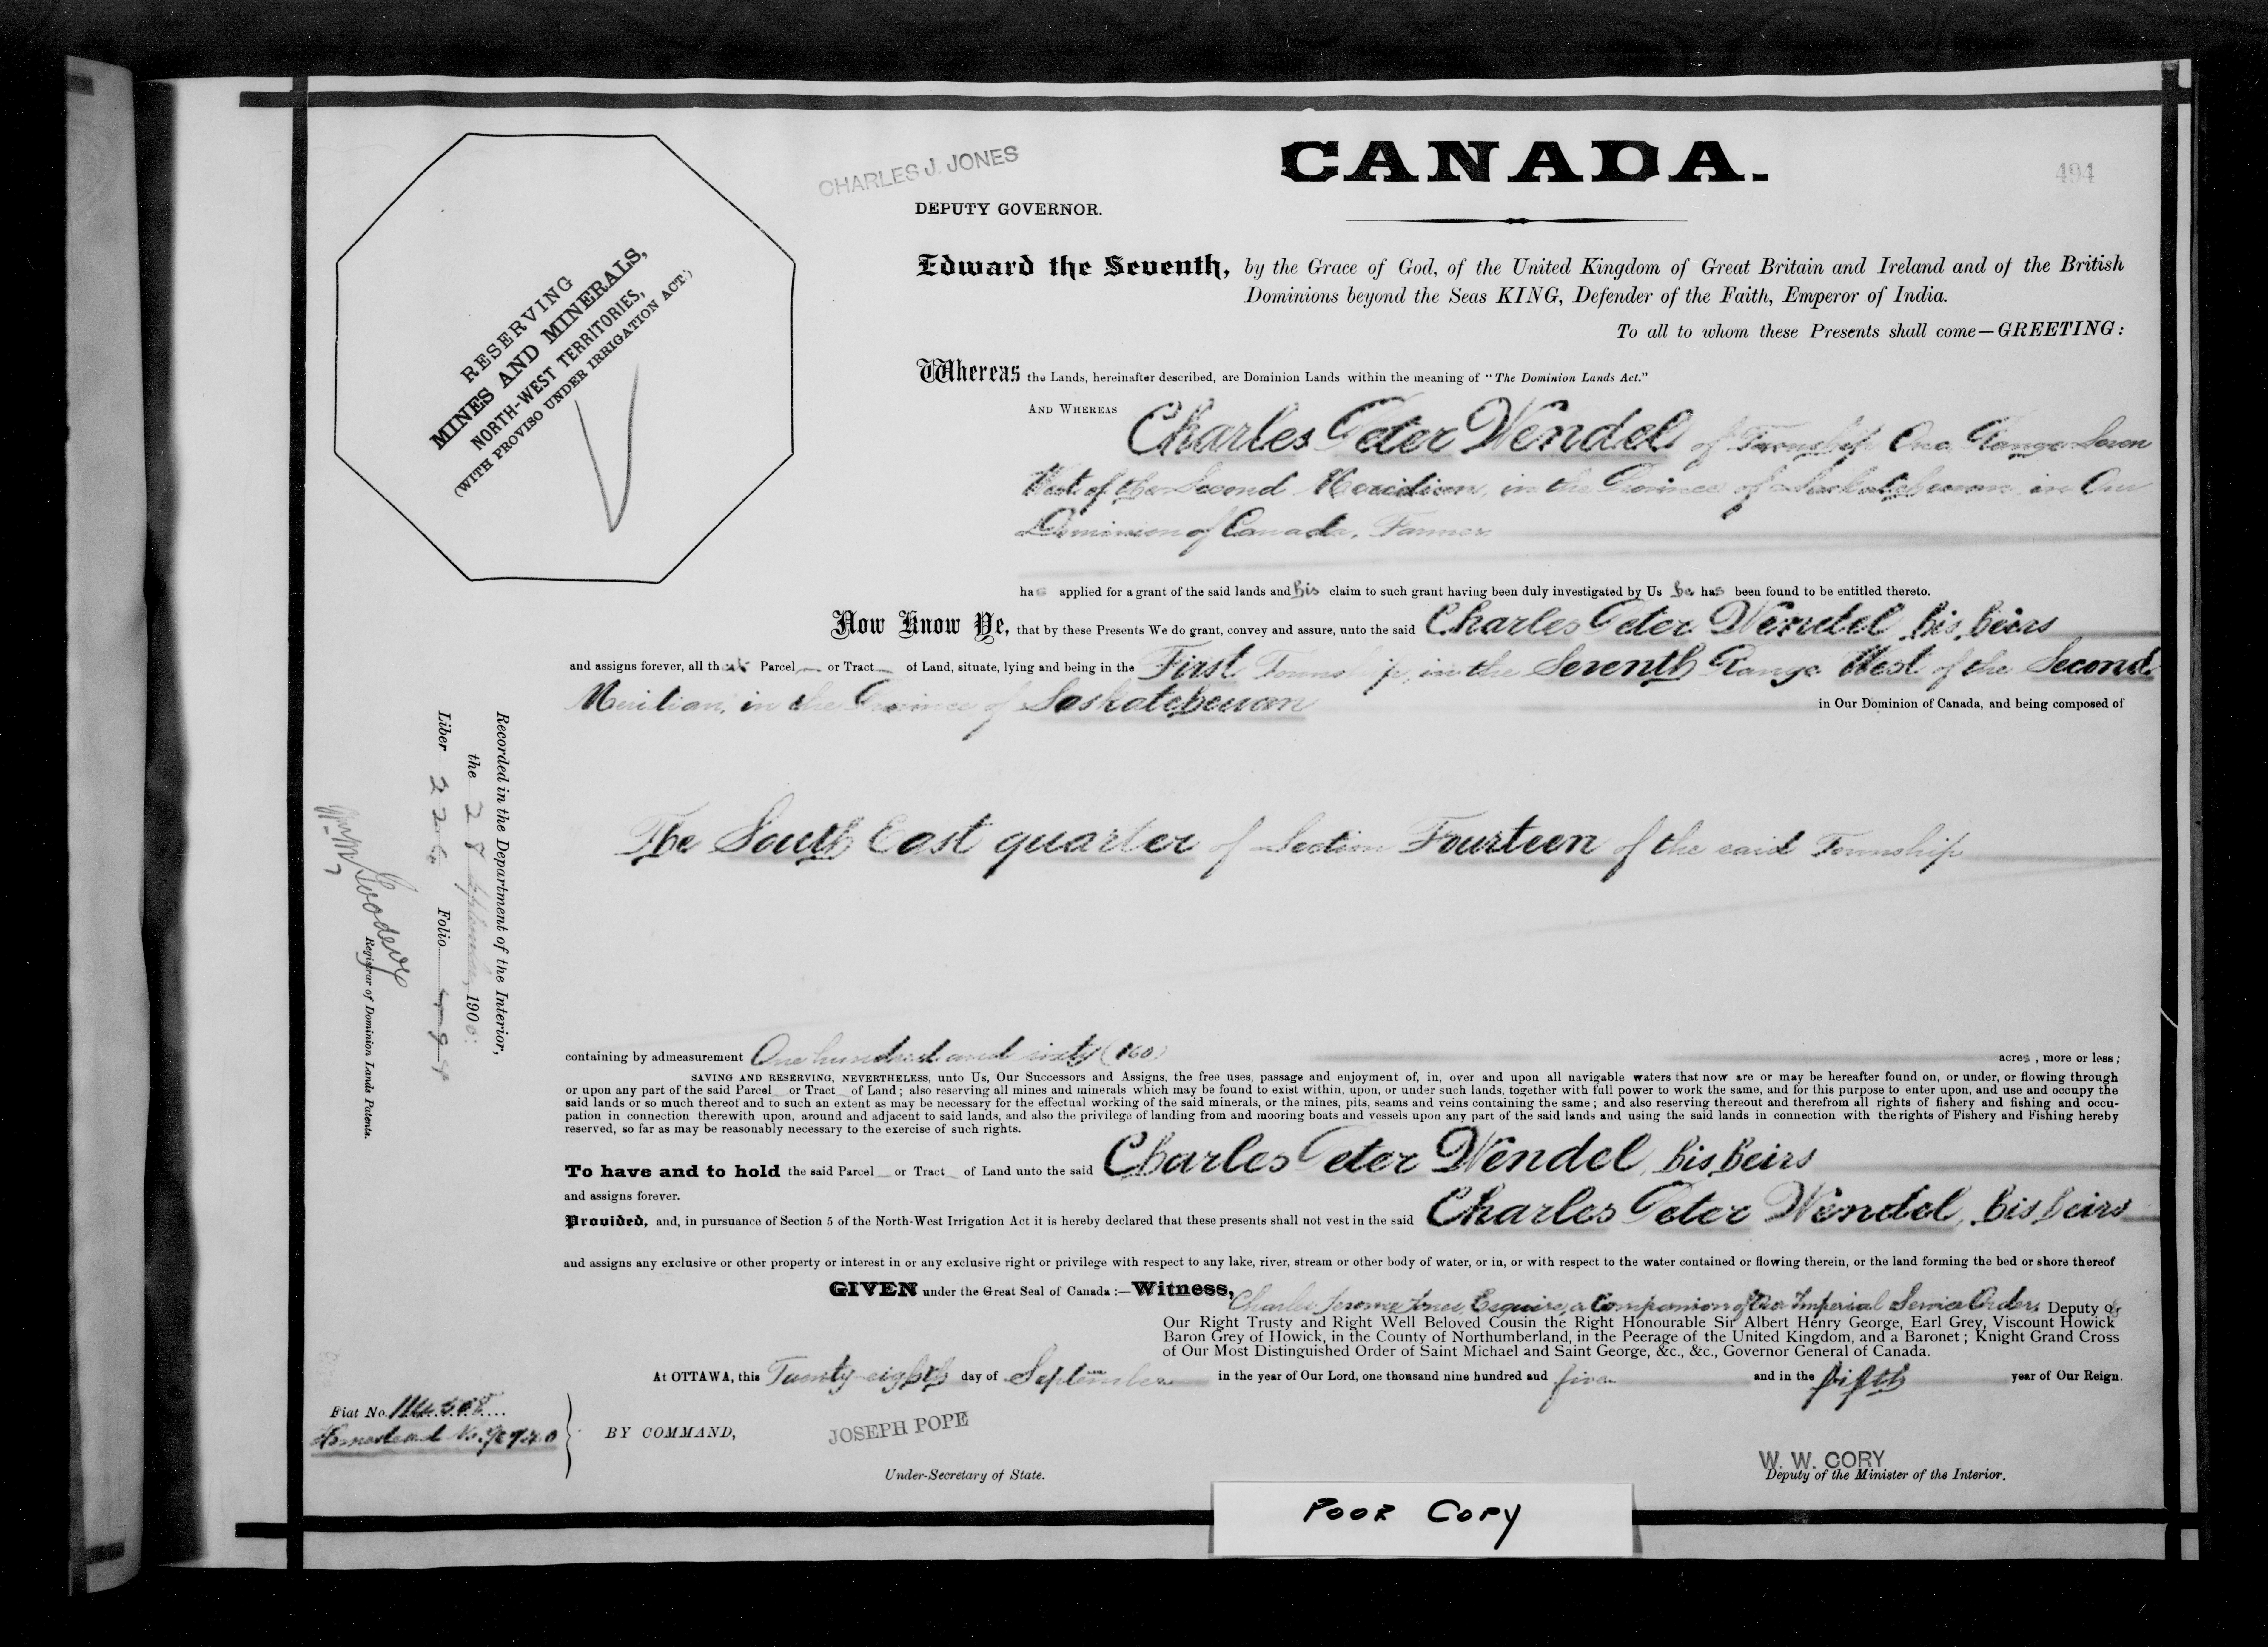 CHARLES J. JONES
DEPUTY GOVERNOR.
CANADA.
494
RESERVING
MINES AND MINERALS,
NORTH-WEST TERRITORIES,
(WITH PROVISO UNDER IRRIGATION ACT.)
Edward the Seventh, by the Grace of God, of the United Kingdom of Great Britain and Ireland and of the British
Dominions beyond the Seas KING, Defender of the Faith, Emperor of India.
To all to whom these Presents shall come—GREETING:
Whereas the Lands, hereinafter described, are Dominion Lands within the meaning of "The Dominion Lands Act."
AND WHEREAS Charles Peter Wendel of Township One, Range Seven
West of the Second Meridian, in the Province of Saskatchewan in Our
Dominion of Canada, Farmer
has applied for a grant of the said lands and his claim to such grant having been duly investigated by Us he has been found to be entitled thereto.
Now Know Ye, that by these Presents We do grant, convey and assure, unto the said Charles Peter Wendel, his heirs
and assigns forever, all that Parcel or Tract of Land, situate, lying and being in the First Township, in the Seventh Range West of the Second
Meridian, in the Province of Saskatchewan in Our Dominion of Canada, and being composed of
The South East quarter of Section Fourteen of the said Township
containing by admeasurement One hundred and sixty (160) acres, more or less;
SAVING AND RESERVING, NEVERTHELESS, unto Us, Our Successors and Assigns, the free uses, passage and enjoyment of, in, over and upon all navigable waters that now are or may be hereafter found on, or under, or flowing through
or upon any part of the said Parcel or Tract of Land; also reserving all mines and minerals which may be found to exist within, upon, or under such lands, together with full power to work the same, and for this purpose to enter upon, and use and occupy the
said lands or so much thereof and to such an extent as may be necessary for the effectual working of the said minerals, or the mines, pits, seams and veins containing the same; and also reserving thereout and therefrom all rights of fishery and fishing and occu-
pation in connection therewith upon, around and adjacent to said lands, and also the privilege of landing from and mooring boats and vessels upon any part of the said lands and using the said lands in connection with the rights of Fishery and Fishing hereby
reserved, so far as may be reasonably necessary to the exercise of such rights.
To have and to hold the said Parcel or Tract of Land unto the said Charles Peter Wendel, his heirs
and assigns forever.
Provided, and, in pursuance of Section 5 of the North-West Irrigation Act it is hereby declared that these presents shall not vest in the said Charles Peter Wendel, his heirs
and assigns any exclusive or other property or interest in or any exclusive right or privilege with respect to any lake, river, stream or other body of water, or in, or with respect to the water contained or flowing therein, or the land forming the bed or shore thereof
GIVEN under the Great Seal of Canada:—Witness, Charles Jerome Jones Esquire, a Companion of Our Imperial Service Order, Deputy of
Our Right Trusty and Right Well Beloved Cousin the Right Honourable Sir Albert Henry George, Earl Grey, Viscount Howick
Baron Grey of Howick, in the County of Northumberland, in the Peerage of the United Kingdom, and a Baronet; Knight Grand Cross
of Our Most Distinguished Order of Saint Michael and Saint George, &c., &c., Governor General of Canada.
At OTTAWA, this Twenty-eighth day of September in the year of Our Lord, one thousand nine hundred and five and in the fifth year of Our Reign.
Fiat No.
Homestead No.
BY COMMAND,
JOSEPH POPE
Under-Secretary of State.
W. W. CORY
Deputy of the Minister of the Interior.
Recorded in the Department of the Interior,
the 28 September, 190
Liber Folio
Goodeve
Registrar of Dominion Lands Patents.
POOR COPY